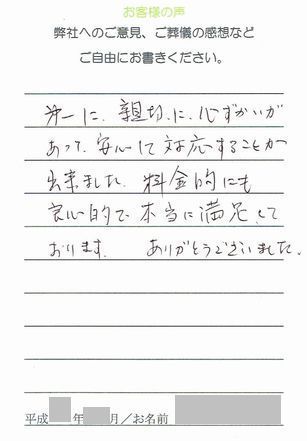 お客様の声
弊社へのご意見、ご葬儀の感想など
ご自由にお書きください。
第一に、親切に、心ずかいが
あって、安心して対応することが
出来ました。料金的にも
良心的で本当に満足して
おります。 ありがとうございました。
平成 年 月／お名前